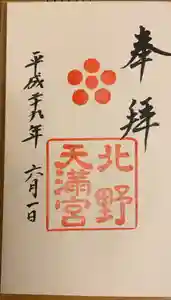 奉拝
北野
天満宮
平成二十九年
六月一日